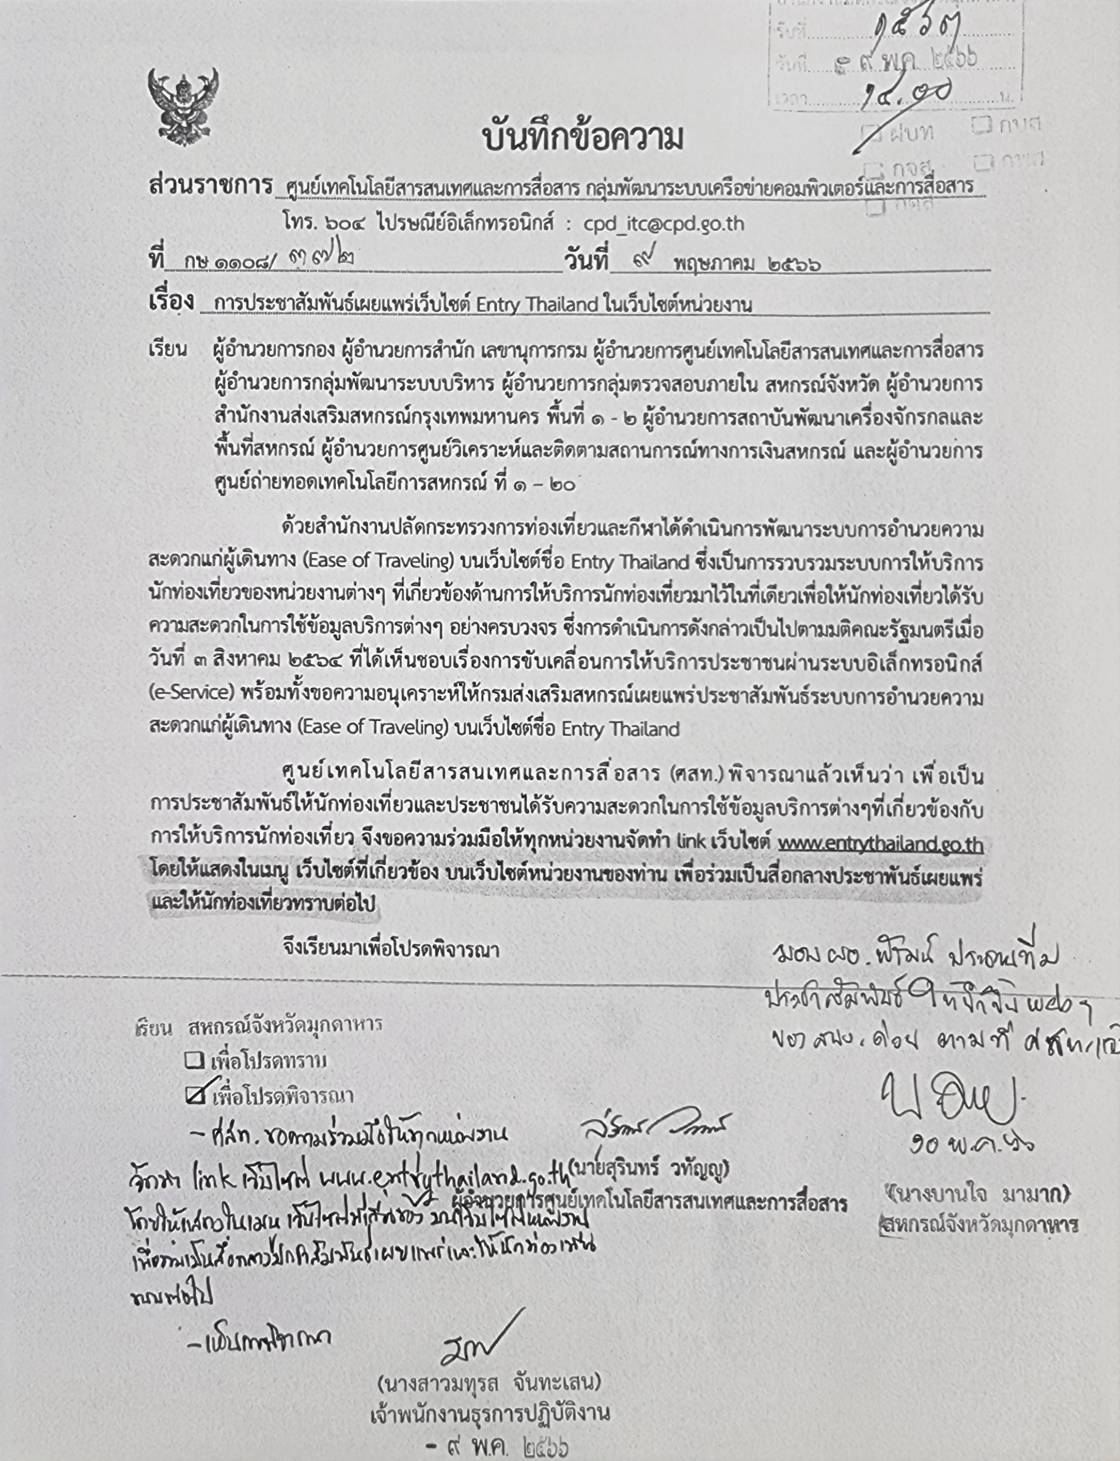 รับที่ ๑๕๖๓
วันที่ - ๙ พ.ค. ๒๕๖๖
เวลา ๑๔.๓๐ น.
ฝบท กบส
กจส
บันทึกข้อความ
ส่วนราชการ ศูนย์เทคโนโลยีสารสนเทศและการสื่อสาร กลุ่มพัฒนาระบบเครือข่ายคอมพิวเตอร์และการสื่อสาร
โทร. ๖๐๔ ไปรษณีย์อิเล็กทรอนิกส์ : cpd_itc@cpd.go.th
ที่ กษ ๑๑๐๘/ ๓๗๒ วันที่ ๙ พฤษภาคม ๒๕๖๖
เรื่อง การประชาสัมพันธ์เผยแพร่เว็บไซต์ Entry Thailand ในเว็บไซต์หน่วยงาน
เรียน ผู้อำนวยการกอง ผู้อำนวยการสำนัก เลขานุการกรม ผู้อำนวยการศูนย์เทคโนโลยีสารสนเทศและการสื่อสาร
ผู้อำนวยการกลุ่มพัฒนาระบบบริหาร ผู้อำนวยการกลุ่มตรวจสอบภายใน สหกรณ์จังหวัด ผู้อำนวยการ
สำนักงานส่งเสริมสหกรณ์กรุงเทพมหานคร พื้นที่ ๑ - ๒ ผู้อำนวยการสถาบันพัฒนาเครื่องจักรกลและ
พื้นที่สหกรณ์ ผู้อำนวยการศูนย์วิเคราะห์และติดตามสถานการณ์ทางการเงินสหกรณ์ และผู้อำนวยการ
ศูนย์ถ่ายทอดเทคโนโลยีการสหกรณ์ ที่ ๑ – ๒๐
ด้วยสำนักงานปลัดกระทรวงการท่องเที่ยวและกีฬาได้ดำเนินการพัฒนาระบบการอำนวยความ
สะดวกแก่ผู้เดินทาง (Ease of Traveling) บนเว็บไซต์ชื่อ Entry Thailand ซึ่งเป็นการรวบรวมระบบการให้บริการ
นักท่องเที่ยวของหน่วยงานต่างๆ ที่เกี่ยวข้องด้านการให้บริการนักท่องเที่ยวมาไว้ในที่เดียวเพื่อให้นักท่องเที่ยวได้รับ
ความสะดวกในการใช้ข้อมูลบริการต่างๆ อย่างครบวงจร ซึ่งการดำเนินการดังกล่าวเป็นไปตามมติคณะรัฐมนตรีเมื่อ
วันที่ ๓ สิงหาคม ๒๕๖๔ ที่ได้เห็นชอบเรื่องการขับเคลื่อนการให้บริการประชาชนผ่านระบบอิเล็กทรอนิกส์
(e-Service) พร้อมทั้งขอความอนุเคราะห์ให้กรมส่งเสริมสหกรณ์เผยแพร่ประชาสัมพันธ์ระบบการอำนวยความ
สะดวกแก่ผู้เดินทาง (Ease of Traveling) บนเว็บไซต์ชื่อ Entry Thailand
ศูนย์เทคโนโลยีสารสนเทศและการสื่อสาร (ศสท.) พิจารณาแล้วเห็นว่า เพื่อเป็น
การประชาสัมพันธ์ให้นักท่องเที่ยวและประชาชนได้รับความสะดวกในการใช้ข้อมูลบริการต่างๆที่เกี่ยวข้องกับ
การให้บริการนักท่องเที่ยว จึงขอความร่วมมือให้ทุกหน่วยงานจัดทำ link เว็บไซต์ www.entrythailand.go.th
โดยให้แสดงในเมนู เว็บไซต์ที่เกี่ยวข้อง บนเว็บไซต์หน่วยงานของท่าน เพื่อร่วมเป็นสื่อกลางประชาพันธ์เผยแพร่
และให้นักท่องเที่ยวทราบต่อไป
จึงเรียนมาเพื่อโปรดพิจารณา
มอบ ผอ. ประสานทีม
ประชาสัมพันธ์
ของ สนง. ด้วย ตามที่ ศสท.
๑๐ พ.ค. ๖๖
(นางบานใจ มามาก)
สหกรณ์จังหวัดมุกดาหาร
เรียน สหกรณ์จังหวัดมุกดาหาร
เพื่อโปรดทราบ
เพื่อโปรดพิจารณา
- ศสท. ขอความร่วมมือให้ทุกหน่วยงาน
จัดทำ link เว็บไซต์ www.entrythailand.go.th
โดยให้แสดงในเมนู เว็บไซต์ที่เกี่ยวข้อง บนเว็บไซต์หน่วยงาน
เพื่อร่วมเป็นสื่อกลางประชาสัมพันธ์เผยแพร่และให้นักท่องเที่ยว
ทราบต่อไป
- เห็นควรพิจารณา
(นายสุรินทร์ วทัญญู)
ผู้อำนวยการศูนย์เทคโนโลยีสารสนเทศและการสื่อสาร
(นางสาวมทุรส จันทะเสน)
เจ้าพนักงานธุรการปฏิบัติงาน
- ๙ พ.ค. ๒๕๖๖